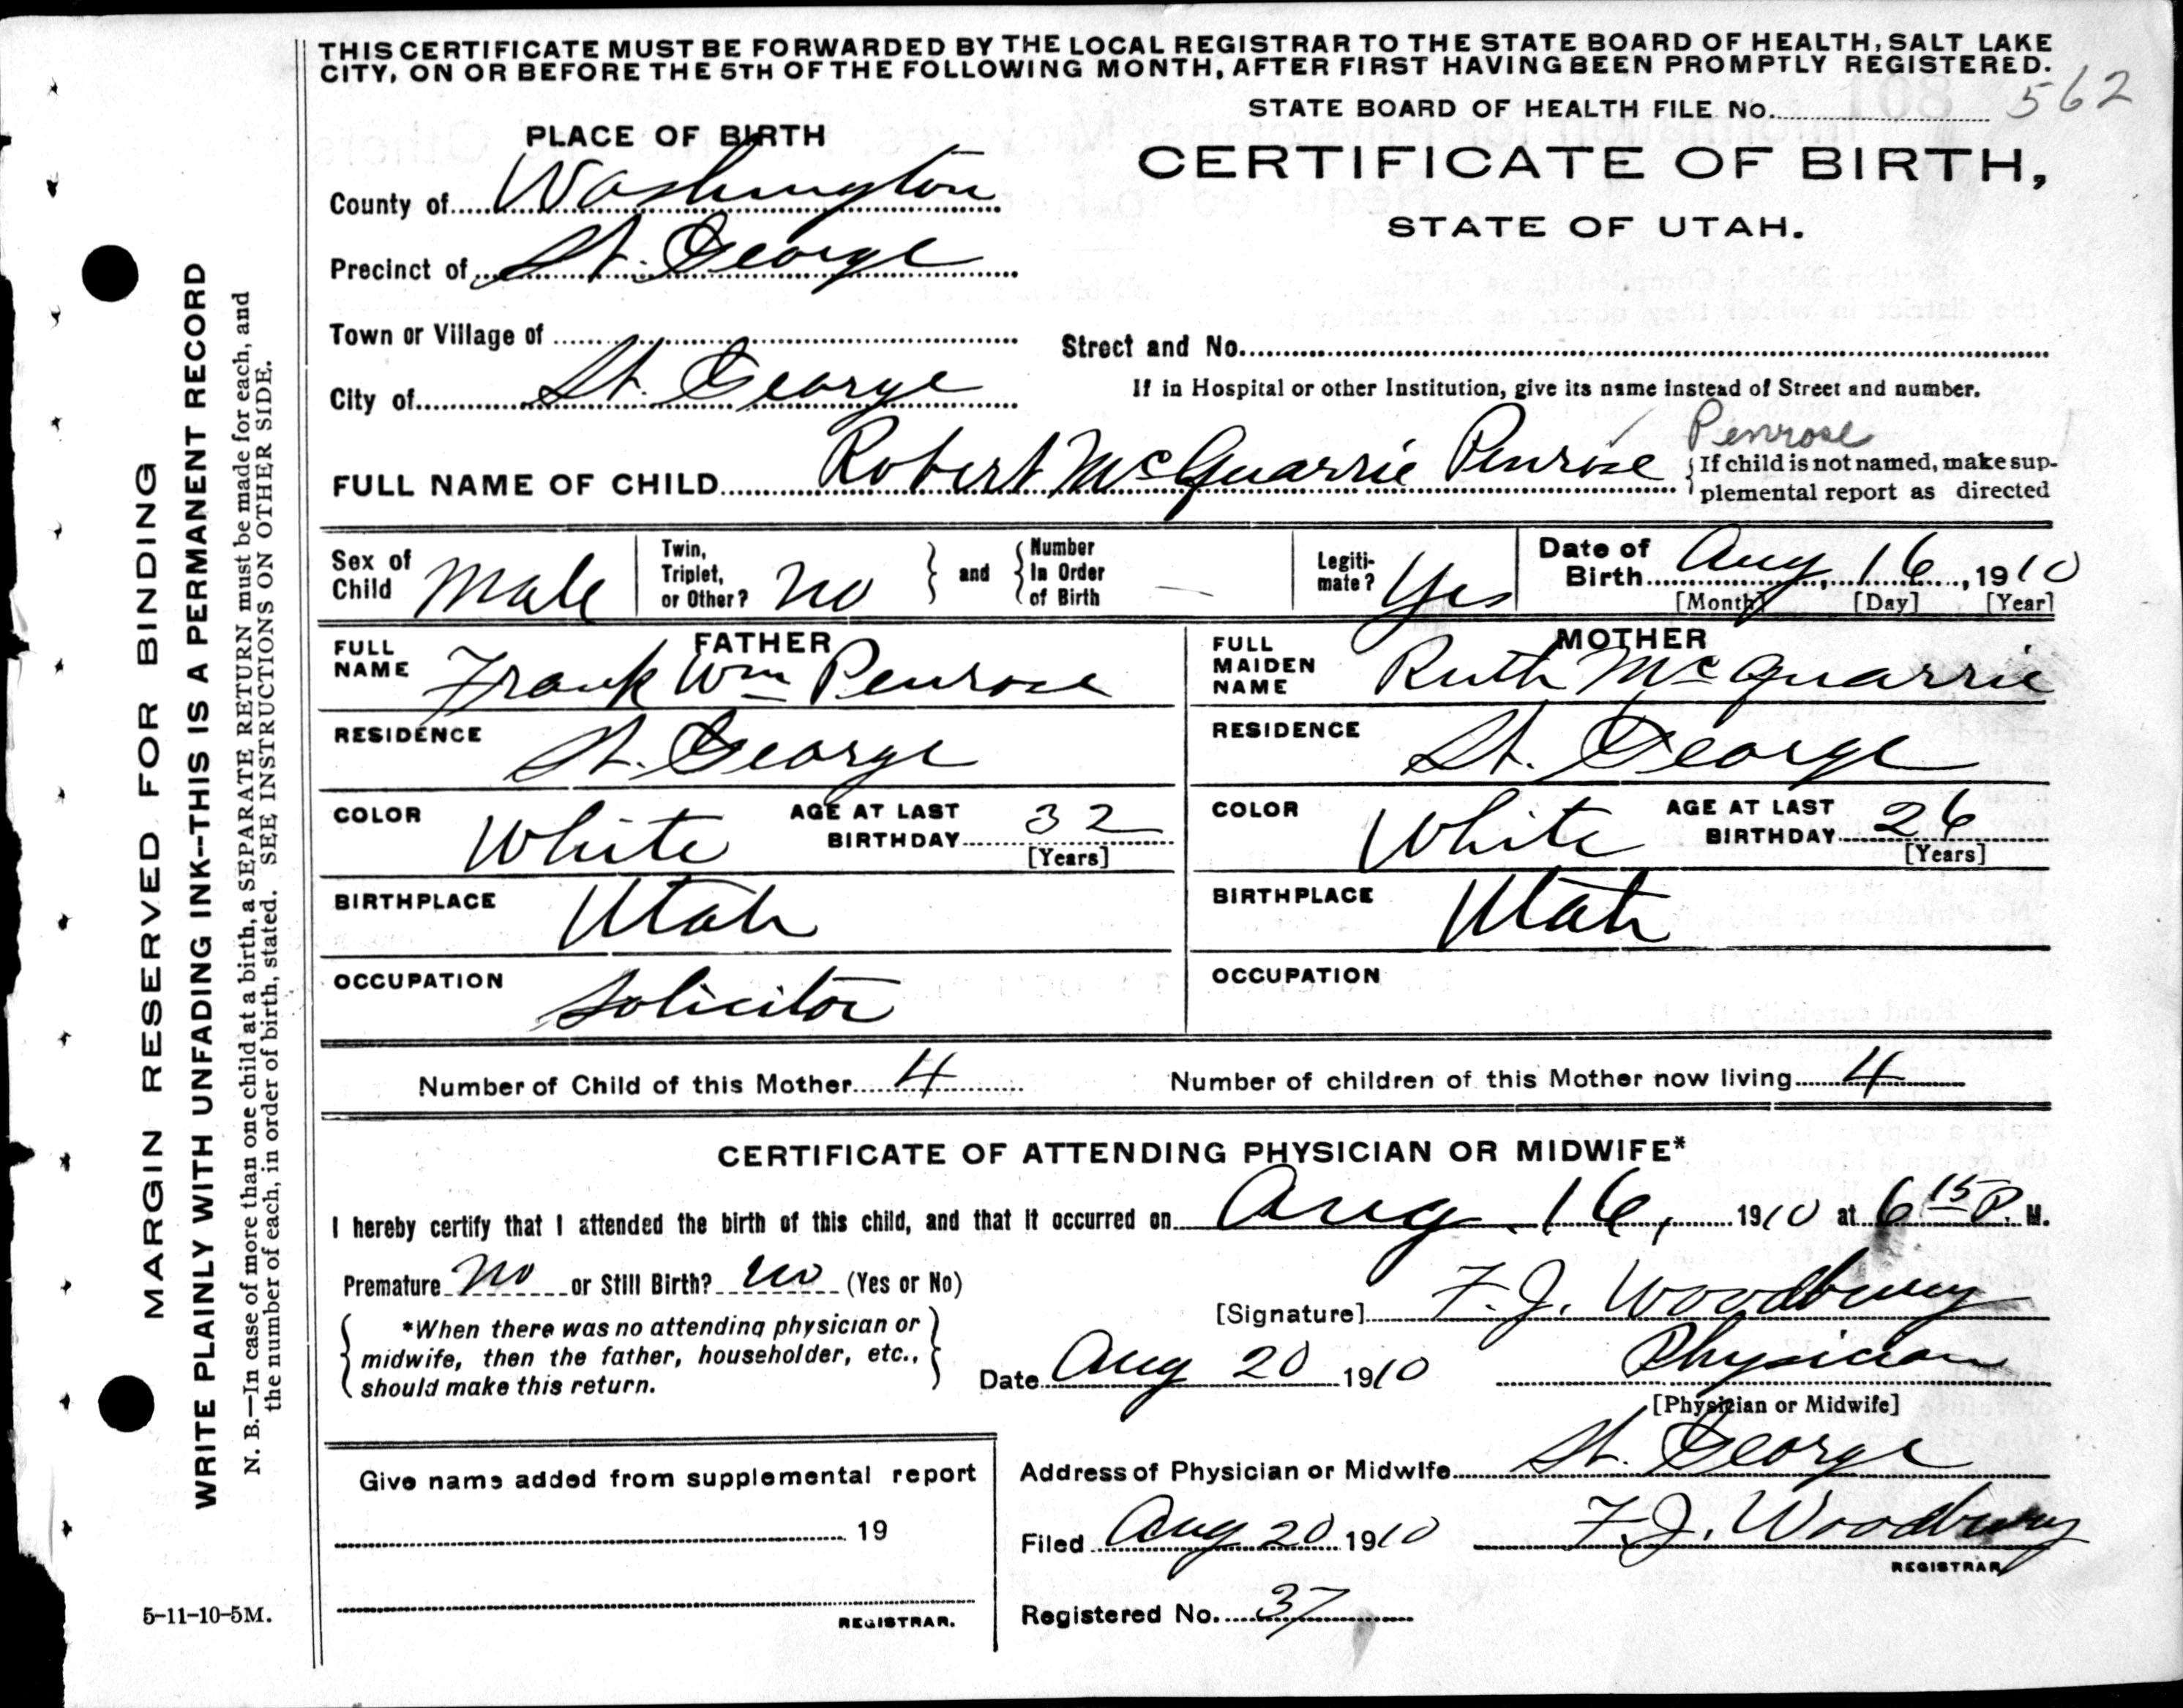 THIS CERTIFICATE MUST BE FORWARDED BY THE LOCAL REGISTRAR TO THE STATE BOARD OF HEALTH, SALT LAKE
CITY, ON OR BEFORE THE 5TH OF THE FOLLOWING MONTH, AFTER FIRST HAVING BEEN PROMPTLY REGISTERED.
STATE BOARD OF HEALTH FILE No. 562
PLACE OF BIRTH
CERTIFICATE OF BIRTH,
STATE OF UTAH.
County of Washington
Precinct of St. George
Town or Village of
Street and No.
City of St. George
If in Hospital or other Institution, give its name instead of Street and number.
Penrose
FULL NAME OF CHILD Robert McQuarrie Penrose
If child is not named, make sup-
plemental report as directed
Sex of
Child Male
Twin,
Triplet,
or Other? No
and
Number
In Order
of Birth —
Legiti-
mate? Yes
Date of
Birth Aug, 16, 1910
[Month] [Day] [Year]
FATHER
FULL
NAME Frank Wm Penrose
RESIDENCE St. George
COLOR White
AGE AT LAST
BIRTHDAY 32
[Years]
BIRTHPLACE Utah
OCCUPATION Solicitor
MOTHER
FULL
MAIDEN
NAME Ruth McQuarrie
RESIDENCE St. George
COLOR White
AGE AT LAST
BIRTHDAY 26
[Years]
BIRTHPLACE Utah
OCCUPATION
Number of Child of this Mother 4
Number of children of this Mother now living 4
CERTIFICATE OF ATTENDING PHYSICIAN OR MIDWIFE*
I hereby certify that I attended the birth of this child, and that it occurred on Aug. 16, 1910 at 6 15 P. M.
Premature No or Still Birth? no (Yes or No)
*When there was no attending physician or
midwife, then the father, householder, etc.,
should make this return.
[Signature] F. J. Woodbury
Date Aug 20 1910
Physician
[Physician or Midwife]
Give name added from supplemental report
19
REGISTRAR.
Address of Physician or Midwife St. George
Filed Aug 20 1910 F. J. Woodbury
REGISTRAR
Registered No. 37
5-11-10-5M.
MARGIN RESERVED FOR BINDING
WRITE PLAINLY WITH UNFADING INK--THIS IS A PERMANENT RECORD
N. B.—In case of more than one child at a birth, a SEPARATE RETURN must be made for each, and
the number of each, in order of birth, stated. SEE INSTRUCTIONS ON OTHER SIDE.